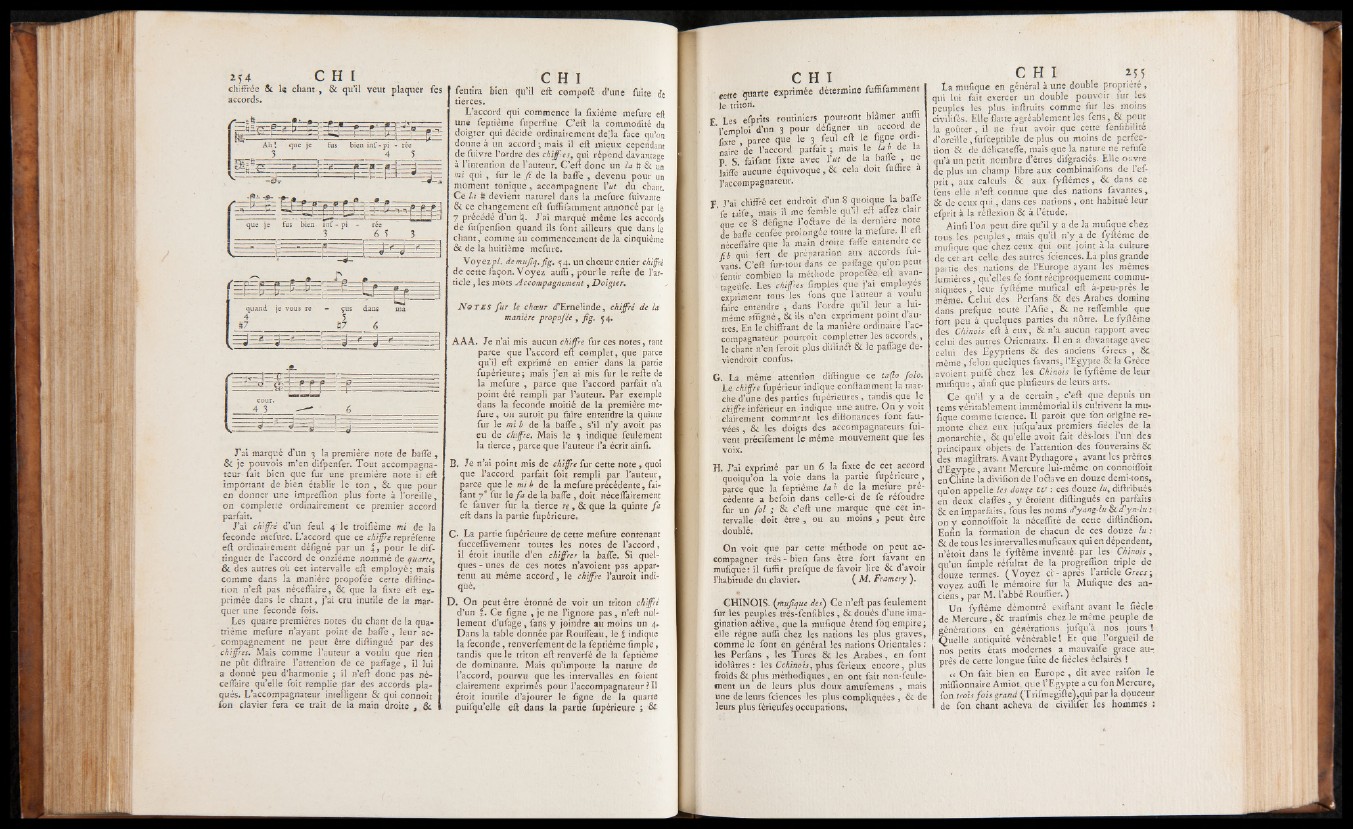 254 C H I
chiffrée & le chant, & qu'il veut plaquer ses
accords.
Ah ! que je fus bien inf - pi - rée
3 4 5
que je fus bien inf - pi - rée
3 6 5 3
quand je vous re - çus dans ma
4 5
#7 #7 6
cour.
4 3 6
J'ai marqué d'un 3 la première note de baſſe,
& je pouvois m'en diſpenſer. Tout accompagna-
teur ſait bien que ſur une première note il eſt
important de bien établir le ton, & que pour
en donner une impreſſion plus forte à l'oreille,
on complette ordinairement ce premier accord
parfait.
J'ai chiffré d'un ſeul 4 le troiſième mi de la
ſeconde meſure. L'accord que ce chiffre repréſente
eſt ordinairement déſigné par un , pour le diſ-
tinguer de l'accord de onzième nommé de quarte,
& des autres où cet intervalle eſt employé; mais
comme dans la manière propoſée cette diſtinc-
tion n'eſt pas néceſſaire, & que la ſixte eſt ex-
primée dans le chant, j'ai cru inutile de la mar-
quer une ſeconde fois.
Les quatre premières notes du chant de la qua-
trième meſure n'ayant point de baſſe, leur ac-
compagnement ne peut être diſtingué par des
chiffres. Mais comme l'auteur a voulu que rien
ne pût diſtraire l'attention de ce paſſage, il lui
a donné peu d'harmonie ; il n'eſt donc pas né-
ceſſaire qu'elle ſoit remplie par des accords pla-
qués. L'accompagnateur intelligent & qui connoît
ſon clavier ſera ce trait de la main droite, &
C H I
ſentira bien qu'il eſt compoſé d'une ſuite de
tierces.
L'accord qui commence la ſixième meſure eſt
une ſeptième ſuperflue C'eſt la commodité du
doigter qui décide ordinairement de la face qu'on
donne à un accord ; mais il eſt mieux cependant
de ſuivre l'ordre des chiffres, qui répond davantage
à l'intention de l'auteur. C'eſt donc un la # & un
mi qui, ſur le ſi de la baſſe, devenu pour un
moment tonique, accompagnent l'ut du chant.
Ce la # devient naturel dans la meſure ſuivante
& ce changement eſt ſuffiſamment annoncé par le
7 précédé d'un ♮. J'ai marqué même les accords
de ſuſpenſion quand ils ſont ailleurs que dans le
chant, comme au commencement de la cinquième
& de la huitième meſure.
Voyez pl. de muſiq. fig. 54. un chœur entier chiffré
de cette façon. Voyez auſſi, pour le reſte de l'ar-
ticle, les mots Accompagnement, Doigter.
NOTES ſur le chœur d'Ernelinde, chiffré de la
manière propoſée, fig. 54.
AAA. Je n'ai mis aucun chiffre ſur ces notes, tant
parce que l'accord eſt complet, que parce
qu'il eſt exprimé en entier dans la partie
ſupérieure; mais j'en ai mis ſur le reſte de
la meſure, parce que l'accord parfait n'a
point été rempli par l'auteur. Par exemple
dans la ſeconde moitié de la première me-
ſure, on auroit pu faire entendre la quinte
ſur le mi b de la baſſe, s'il n'y avoit pas
eu de chiffre. Mais le 3 indique ſeulement
la tierce, parce que l'auteur l'a écrit ainſi.
B. Je n'ai point mis de chiffre ſur cette note, quoi
que l'accord parfait ſoit rempli par l'auteur,
parce que le mi b de la meſure précédente, fai-
ſant 7e ſur le fa de la baſſe, doit néceſſairement
ſe ſauver ſur la tierce re, & que la quinte fa
eſt dans la partie ſupérieure.
C. La partie ſupérieure de cette meſure contenant
ſucceſſivement toutes les notes de l'accord,
il étoit inutile d'en chiffrer la baſſe. Si quel-
ques-unes de ces notes n'avoient pas appar-
tenu au même accord, le chiffre l'auroit indi-
qué.
D. On peut être étonné de voir un triton chiffré
d'un . Ce ſigne, je ne l'ignore pas, n'eſt nul-
lement d'uſage, ſans y joindre au moins un 4.
Dans la table donnée par Rouſſeau, le indique
la ſeconde, renverſement de la ſeptième ſimple,
tandis que le triton eſt renverſé de la ſeptième
de dominante. Mais qu'importe la nature de
l'accord, pourvu que les intervalles en ſoient
clairement exprimés pour l'accompagnateur ? Il
étoit inutile d'ajouter le ſigne de la quarte
puiſqu'elle eſt dans la partie ſupérieure ; &
C H I
cette quarte exprimée détermine ſuffiſamment
le triton.
E. Les eſprits routiniers pourront blâmer auſſi
l'emploi d'un 3 pour déſigner un accord de
ſixte, parce que le 3 ſeul eſt le ſigne ordi-
naire de l'accord parfait ; mais le la b de la
P. S. faiſant ſixte avec l'ut de la baſſe, ne
laiſſe aucune équivoque, & cela doit ſuffire à
l'accompagnateur.
F. J'ai chiffré cet endroit d'un 8 quoique la baſſe
ſe taiſe, mais il me ſemble qu'il eſt aſſez clair
que ce 8 déſigne l'octave de la dernière note
de baſſe cenſée prolongée toute la meſure. Il eſt
néceſſaire que la main droite faſſe entendre ce
ſi b qui ſert de préparation aux accords ſui-
vans. C'eſt ſur-tout dans ce paſſage qu'on peut
ſentir combien la méthode propoſée eſt avan-
tageuſe. Les chiffres ſimples que j'ai employés
expriment tous les ſons que l'auteur a voulu
faire entendre, dans l'ordre qu'il leur a lui-
même aſſigné, & ils n'en expriment point d'au-
tres. En le chiffrant de la manière ordinaire l'ac-
compagnateur pourroit completter les accords,
le chant n'en ſeroit plus diſtinct & le paſſage de-
viendroit confus.
G. La même attention diſtingue ce taſto ſolo.
Le chiffre ſupérieur indique conſtamment la mar-
che d'une des parties ſupérieures, tandis que le
chiffre inférieur en indique une autre. On y voit
clairement comment les diſſonances ſont ſau-
vées, & les doigts des accompagnateurs ſui-
vent préciſément le même mouvement que les
voix.
H. J'ai exprimé par un 6 la ſixte de cet accord
quoiqu'on la voie dans la partie ſupérieure,
parce que la ſeptième la b de la meſure pré-
cédente a beſoin dans celle-ci de ſe réſoudre
ſur un ſol ; & c'eſt une marque que cet in-
tervalle doit être, ou au moins, peut être
doublé.
On voit que par cette méthode on peut ac-
compagner très-bien ſans être fort ſavant en
muſique: il ſuffit preſque de ſavoir lire & d'avoir
l'habitude du clavier. ( M. Framery ).
CHINOIS. (muſique des) Ce n'eſt pas ſeulement
ſur les peuples très-ſenſibles, & doués d'une ima-
gination active, que la muſique étend ſon empire;
elle règne auſſi chez les nations les plus graves,
comme le ſont en général les nations Orientales :
les Perſans, les Turcs & les Arabes, en ſont
idolâtres : les Cchinois, plus ſérieux encore, plus
froids & plus méthodiques, en ont fait non-ſeule-
ment un de leurs plus doux amuſemens, mais
une de leurs ſciences les plus compliquées, & de
leurs plus ſérieuſes occupations.
C H I 255
La muſique en général à une double propriété,
qui lui fait exercer un double pouvoir ſur les
peuples les plus inſtruits comme ſur les moins
civiliſés. Elle flatte agréablement les ſens, & pour
la goûter, il ne faut avoir que cette ſenſibilité
d'oreille, ſuſceptible de plus ou moins de perfec-
tion & de délicateſſe, mais que la nature ne refuſe
qu'à un petit nombre d'êtres diſgraciés. Elle ouvre
de plus un champ libre aux combinaiſons de l'eſ-
prit, aux calculs & aux ſyſtêmes, & dans ce
ſens elle n'eſt connue que des nations ſavantes,
& de ceux qui, dans ces nations, ont habitué leur
eſprit à la réflexion & à l'étude.
Ainſi l'on peut dire qu'il y a de la muſique chez
tous les peuples, mais qu'il n'y a de ſyſtême de
muſique que chez ceux qui ont joint à la culture
de cet art celle des autres ſciences. La plus grande
partie des nations de l'Europe ayant les mêmes
lumières, qu'elles ſe ſont réciproquement commu-
niquées, leur ſyſtême muſical eſt à-peu-près le
même. Celui des Perſans & des Arabes domine
dans preſque toute l'Aſie, & ne reſſemble que
fort peu à quelques parties du nôtre. Le ſyſtême
des Chinois eſt à eux, & n'a aucun rapport avec
celui des autres Orientaux. Il en a davantage avec
celui des Egyptiens & des anciens Grecs, &
même, ſelon quelques ſavans, l'Egypte & la Grèce
avoient puiſé chez les Chinois le ſyſtême de leur
muſique, ainſi que pluſieurs de leurs arts.
Ce qu'il y a de certain, c'eſt que depuis un
tems véritablement immémorial ils cultivent la mu-
ſique comme ſcience. Il paroît que ſon origine re-
monte chez eux juſqu'aux premiers ſiècles de la
monarchie, & qu'elle avoit fait dès-lors l'un des
principaux objets de l'attention des ſouverains &
des magiſtrats. Avant Pythagore, avant les prêtres
d'Egypte, avant Mercure lui-même on connoiſſoit
en Chine la diviſion de l'octave en douze demi-tons,
qu'on appelle les douze lu : ces douze lu, diſtribués
en deux claſſes, y étoient diſtingués en parfaits
& en imparfaits, ſous les noms d'yang-lu & d'yn-lu :
on y connoiſſoit la néceſſité de cette diſtinction.
Enfin la formation de chacun de ces douze lu :
& de tous les intervalles muſicaux qui en dépendent,
n'étoit dans le ſyſtême inventé par les Chinois,
qu'un ſimple réſultat de la progreſſion triple de
douze termes. ( Voyez ci-après l'article Grecs ;
voyez auſſi le mémoire ſur la Muſique des an-
ciens, par M. l'abbé Rouſſier. )
Un ſyſtême démontré exiſtant avant le ſiècle
de Mercure, & tranſmis chez le même peuple de
générations en générations juſqu'à nos jours !
Quelle antiquité vénérable ! Et que l'orgueil de
nos petits états modernes a mauvaiſe grace au-
près de cette longue ſuite de ſiècles éclairés !
« On fait bien en Europe, dit avec raiſon le
miſſionnaire Amiot, que l'Egypte a eu ſon Mercure,
ſon trois fois grand (Triſmegiſte), qui par la douceur
de ſon chant acheva de civiliſer les hommes :